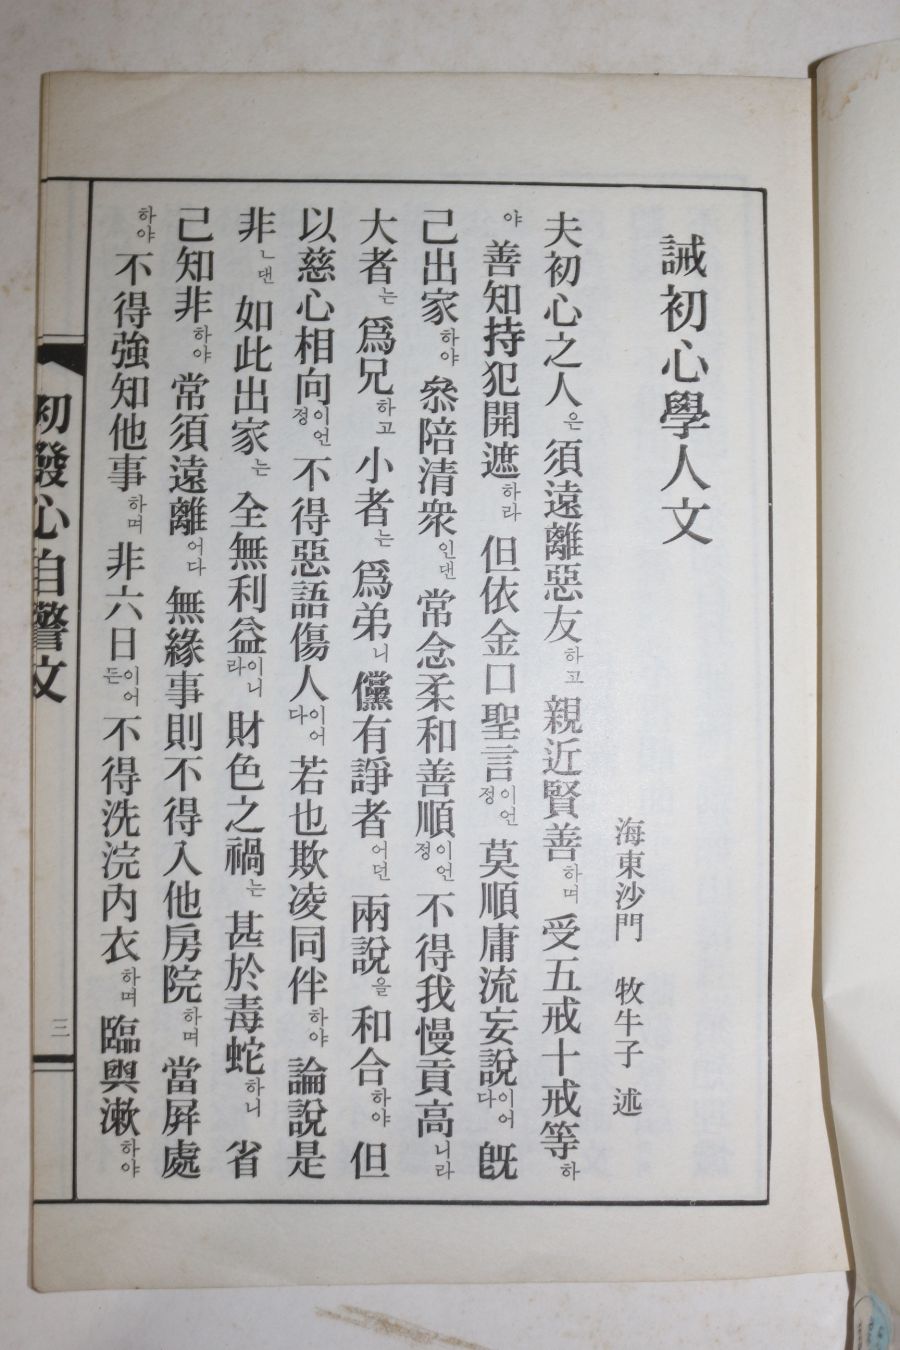 誡初心學人文
海東沙門 牧牛子 述
夫初心之人은 須遠離惡友하고 親近賢善하며 受五戒十戒等하
야 善知持犯開遮하라 但依金口聖言이언정 莫順庸流妄說이어다 旣
己出家하야 叅陪清衆인댄 常念柔和善順이언정 不得我慢貢高니라
大者는 爲兄하고 小者는 爲弟니 儻有諍者어던 兩說을 和合하야 但
以慈心相向이언정 不得惡語傷人이어다 若也欺凌同伴하야 論說是
非ㄴ댄 如此出家는 全無利益이니라 財色之禍는 甚於毒蛇하니 省
己知非하야 常須遠離어다 無緣事則不得入他房院하며 當屛處
하야 不得強知他事하며 非六日이어든 不得洗浣內衣하며 臨與漱하야
初發心自警文
三